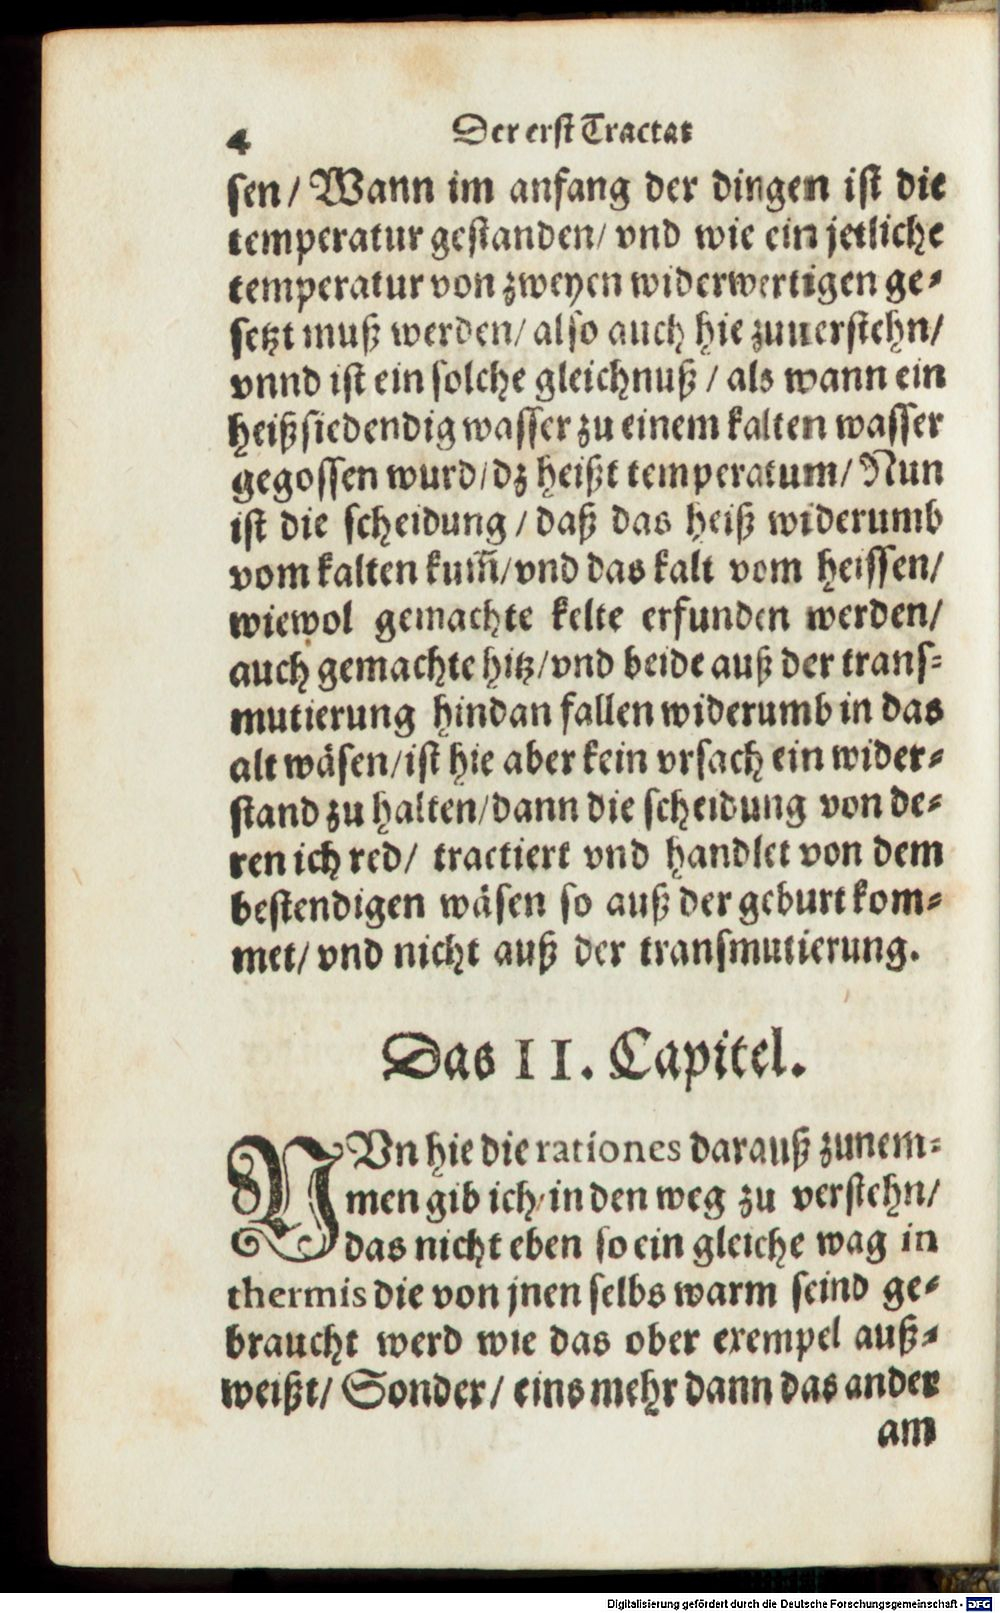 4 Der erst Tractat
sen/ Wann im anfang der dingen ist die
temperatur gestanden/ vnd wie ein jetliche
temperatur von zweyen widerwertigen ge-
setzt muß werden/ also auch hie zuuerstehn/
vnnd ist ein solche gleichnuß / als wann ein
heißsiedendig wasser zu einem kalten wasser
gegossen wurd/ dz heißt temperatum/ Nun
ist die scheidung / daß das heiß widerumb
vom kalten kum̄/ vnd das kalt vom heissen/
wiewol gemachte kelte erfunden werden/
auch gemachte hitz/ vnd beide auß der trans-
mutierung hindan fallen widerumb in das
alt wäsen/ ist hie aber kein vrsach ein wider-
stand zu halten/ dann die scheidung von de-
ren ich red/ tractiert vnd handlet von dem
bestendigen wäsen so auß der geburt kom-
met/ vnd nicht auß der transmutierung.
Das II. Capitel.
NVn hie die rationes darauß zunem-
men gib ich/ in den weg zu verstehn/
das nicht eben so ein gleiche wag in
thermis die von jnen selbs warm seind ge-
braucht werd wie das ober exempel auß-
weißt/ Sonder/ eins mehr dann das ander
am
Digitalisierung gefördert durch die Deutsche Forschungsgemeinschaft - DFG